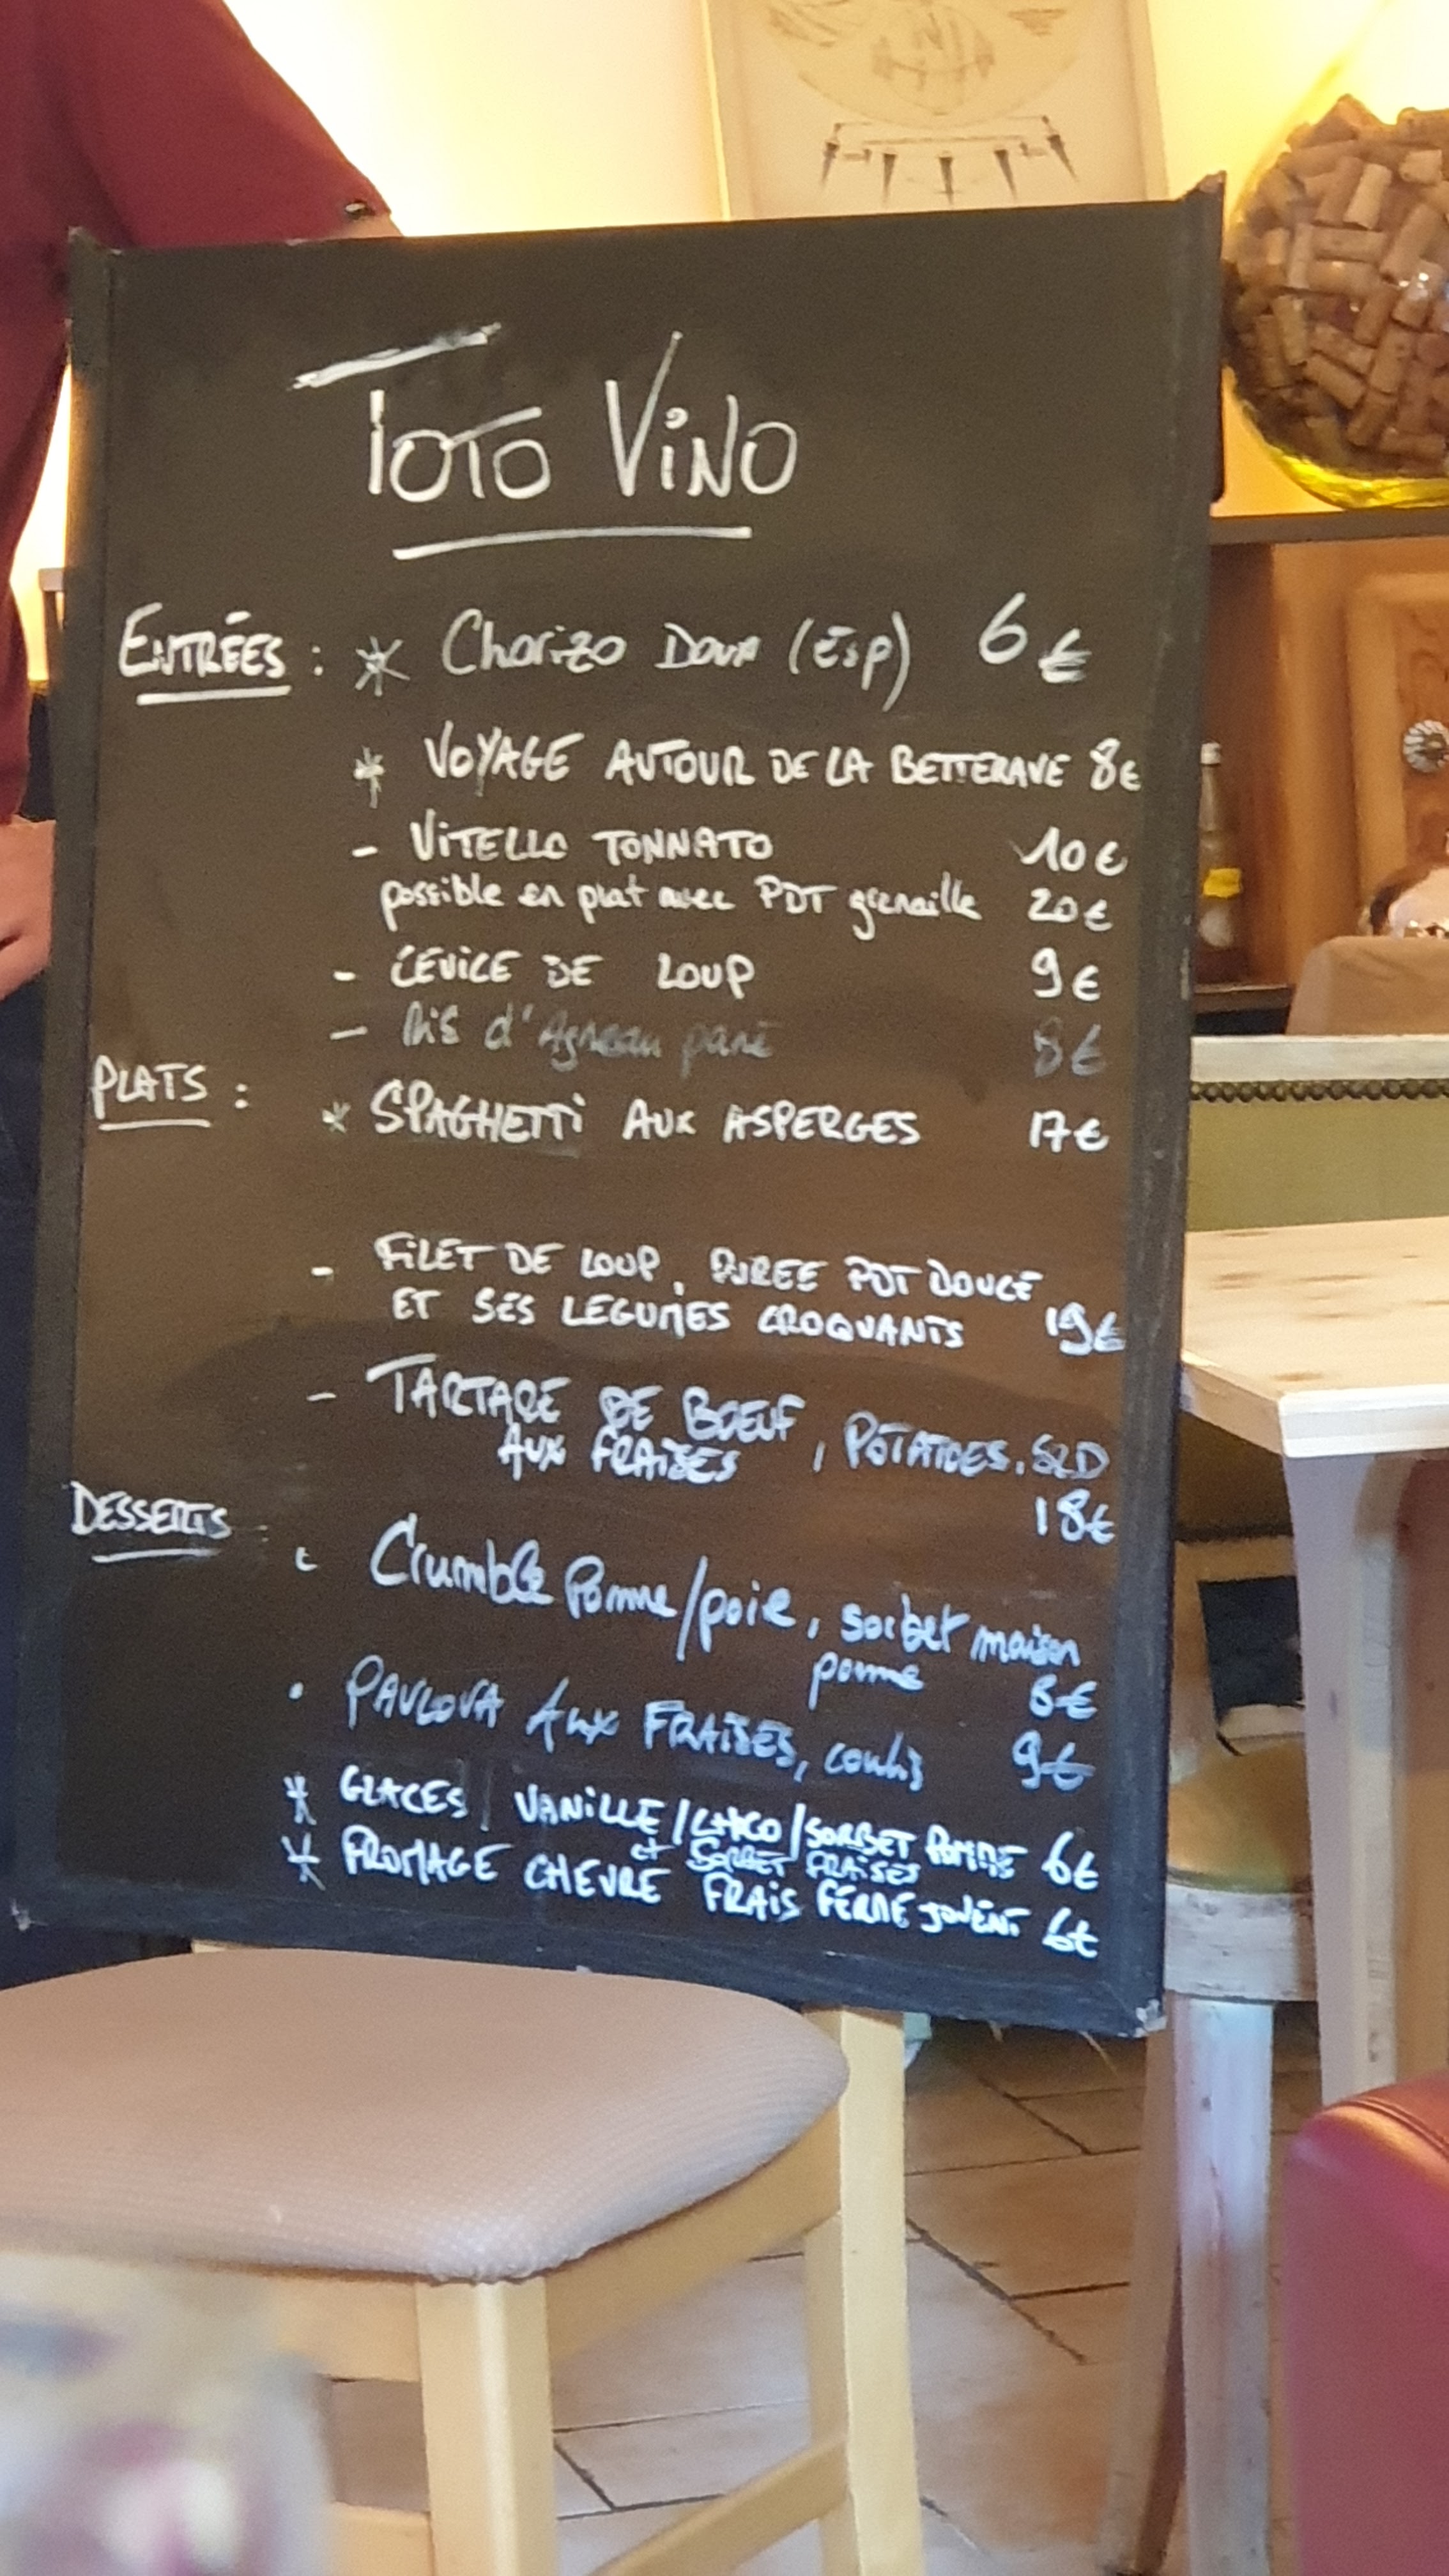 TOTO VINO
ENTRÉES : * Chorizo Doux (Esp) 6€
* VOYAGE AUTOUR DE LA BETTERAVE 8€
- VITELLO TONNATO 10€
possible en plat avec PDT grenaille 20€
- CEVICE DE LOUP 9€
- Ris d'Agneau pané 8€
PLATS : * SPAGHETTI AUX ASPERGES 17€
- FILET DE LOUP, PUREE PDT DOUCE
ET SES LEGUMES CROQUANTS 19€
- TARTARE DE BOEUF, POTATOES, SLD
AUX FRAISES
18€
DESSERTS : Crumble Pomme/poire, sorbet maison
pomme 8€
• PAVLOVA AUX FRAISES, coulis 9€
* GLACES / VANILLE/CHOCO/SORBET POMME 6€
et SORBET FRAISES
* FROMAGE CHEVRE FRAIS FERME JOVENT 6€